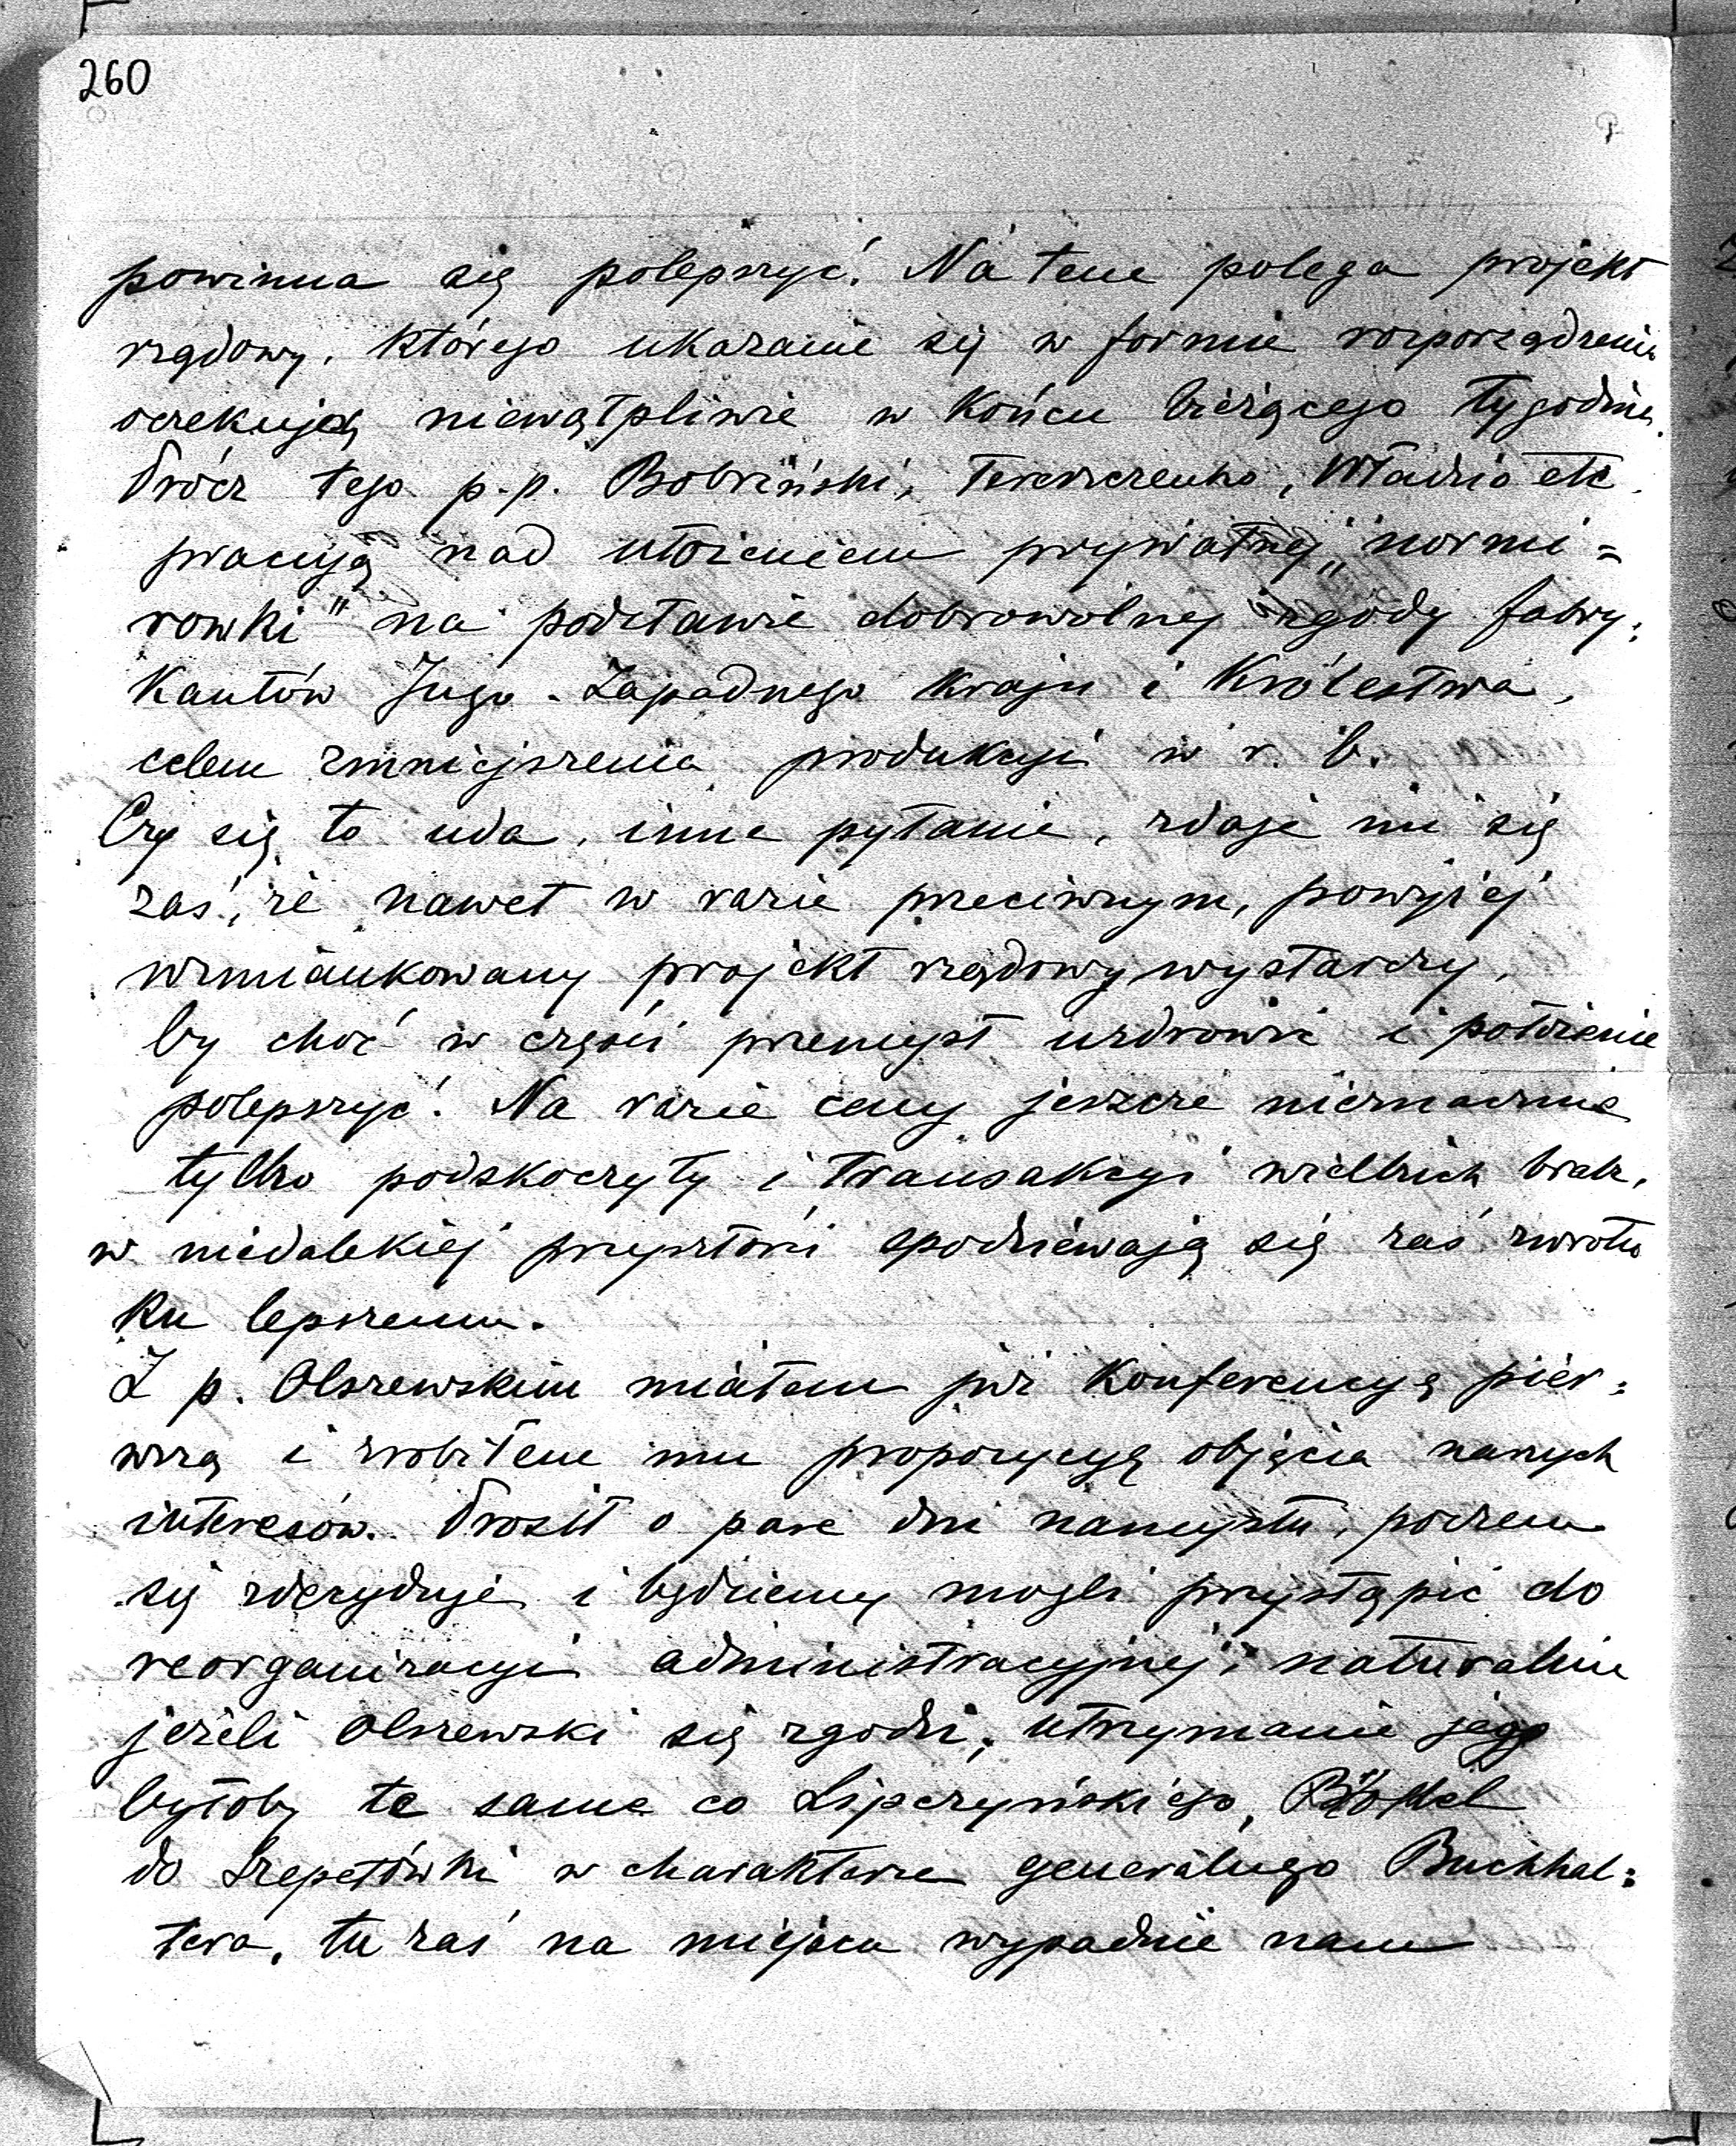 260
powinna się polepszyć. Na tem polega projekt
rządowy, którego ukazanie się w formie rozporządzenia
oczekują niewątpliwie w końcu bieżącego tygodnia.
Prócz tego p.p. Bobriński, Tereszczenko, Władzio etc.
pracują nad ułożeniem prywatnej „normi=
rowki" na podstawie dobrowolnej zgody fabry=
kantów Jugo-Zapadnego Kraju i Królestwa,
celem zmniejszenia produkcyi w r. b.
Czy się to uda, inne pytanie, zdaje mi się
zaś, że nawet w razie przeciwnym, powyżej
wzmiankowany projekt rządowy wystarczy,
by choć w części przemysł uzdrowić i położenie
polepszyć. Na razie ceny jeszcze nieznacznie
tylko podskoczyły i transakcyi wielkich brak,
w niedalekiej przyszłości spodziewają się zaś zwrotu
ku lepszemu.
Z p. Olszewskim miałem już konferencyą pier=
wszą i zrobiłem mu propozycyą objęcia naszych
interesów. Prosił o parę dni namysłu, poczem
się zdecyduje i będziemy mogli przystąpić do
reorganizacyi administracyjnej, naturalnie
jeżeli Olszewski się zgodzi; utrzymanie jego
byłoby te same co Lipczyńskiego,
do Szepetówki w charakterze generalnego Buchhal=
tera, tu zaś na miejscu wypadnie nam